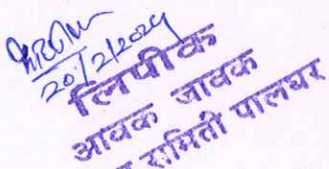 20/2/2024
लिपीक
आवक जावक
समिती पालघर